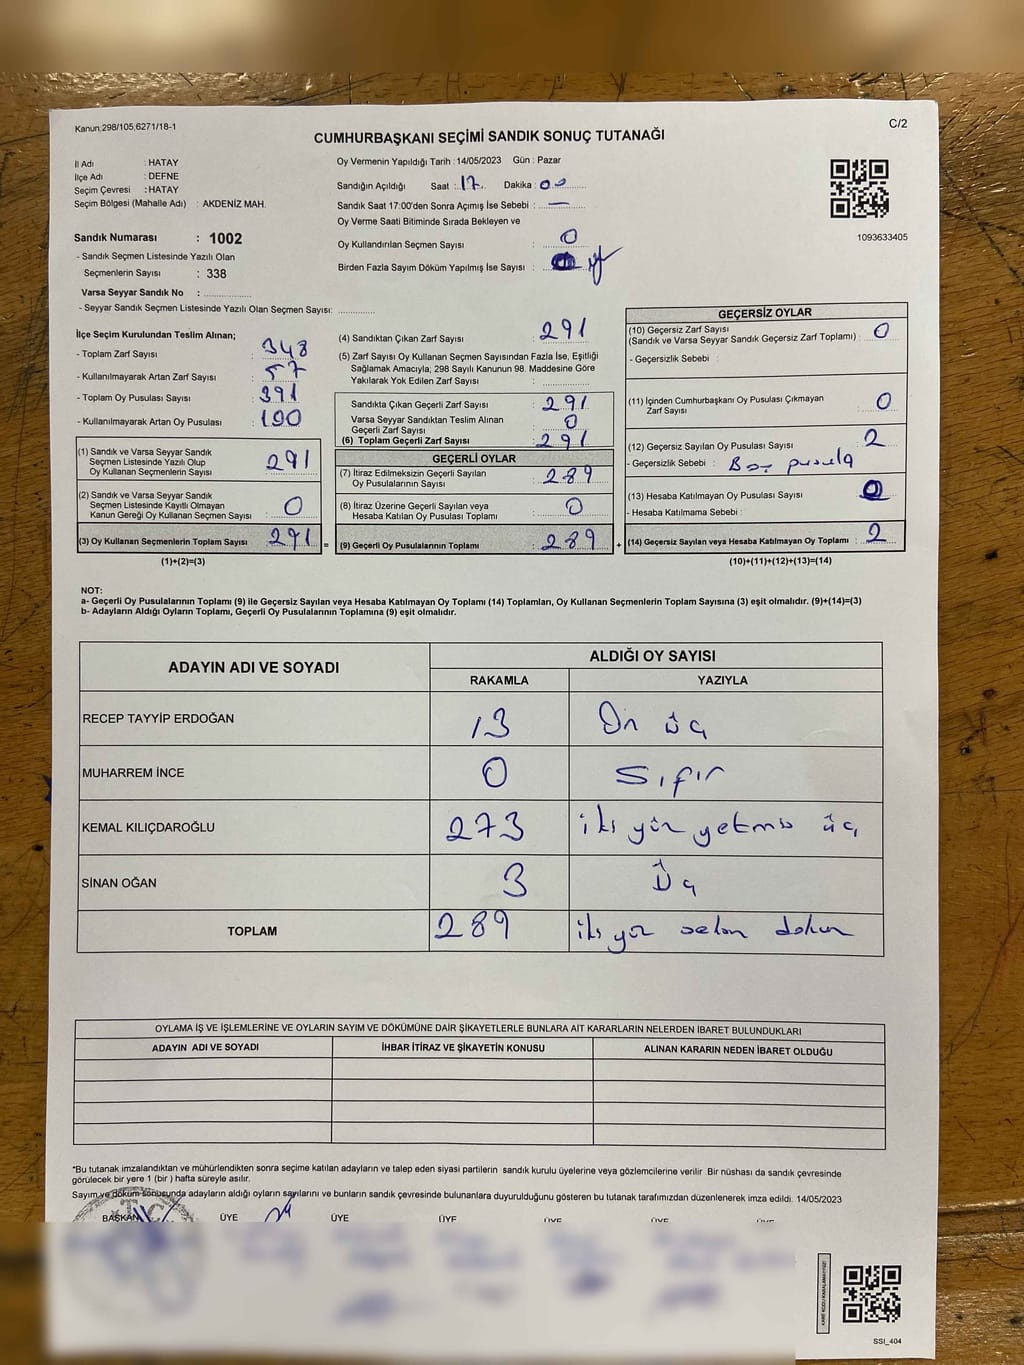 Kanun,298/105,6271/18-1
C/2
CUMHURBAŞKANI SEÇİMİ SANDIK SONUÇ TUTANAĞI
İl Adı : HATAY
İlçe Adı : DEFNE
Seçim Çevresi : HATAY
Seçim Bölgesi (Mahalle Adı) : AKDENİZ MAH.
Sandık Numarası : 1002
- Sandık Seçmen Listesinde Yazılı Olan
Seçmenlerin Sayısı : 338
Varsa Seyyar Sandık No :
- Seyyar Sandık Seçmen Listesinde Yazılı Olan Seçmen Sayısı:
Oy Vermenin Yapıldığı Tarih : 14/05/2023 Gün : Pazar
Sandığın Açıldığı Saat : 17 Dakika : 00
Sandık Saat 17:00'den Sonra Açımış İse Sebebi : —
Oy Verme Saati Bitiminde Sırada Bekleyen ve
Oy Kullandırılan Seçmen Sayısı : 0
Birden Fazla Sayım Döküm Yapılmış İse Sayısı :
1093633405
İlçe Seçim Kurulundan Teslim Alınan;
- Toplam Zarf Sayısı : 348
- Kullanılmayarak Artan Zarf Sayısı : 57
- Toplam Oy Pusulası Sayısı : 391
- Kullanılmayarak Artan Oy Pusulası : 100
(1) Sandık ve Varsa Seyyar Sandık
Seçmen Listesinde Yazılı Olup
Oy Kullanan Seçmenlerin Sayısı : 291
(2) Sandık ve Varsa Seyyar Sandık
Seçmen Listesinde Kayıtlı Olmayan
Kanun Gereği Oy Kullanan Seçmen Sayısı : 0
(3) Oy Kullanan Seçmenlerin Toplam Sayısı : 291 =
(1)+(2)=(3)
(4) Sandıktan Çıkan Zarf Sayısı : 291
(5) Zarf Sayısı Oy Kullanan Seçmen Sayısından Fazla İse, Eşitliği
Sağlamak Amacıyla; 298 Sayılı Kanunun 98. Maddesine Göre
Yakılarak Yok Edilen Zarf Sayısı :
Sandıkta Çıkan Geçerli Zarf Sayısı : 291
Varsa Seyyar Sandıktan Teslim Alınan
Geçerli Zarf Sayısı : 0
(6) Toplam Geçerli Zarf Sayısı : 291
GEÇERLİ OYLAR
(7) İtiraz Edilmeksizin Geçerli Sayılan
Oy Pusulalarının Sayısı : 289
(8) İtiraz Üzerine Geçerli Sayılan veya
Hesaba Katılan Oy Pusulası Toplamı : 0
(9) Geçerli Oy Pusulalarının Toplamı : 289 +
GEÇERSİZ OYLAR
(10) Geçersiz Zarf Sayısı
(Sandık ve Varsa Seyyar Sandık Geçersiz Zarf Toplamı) : 0
- Geçersizlik Sebebi :
(11) İçinden Cumhurbaşkanı Oy Pusulası Çıkmayan
Zarf Sayısı : 0
(12) Geçersiz Sayılan Oy Pusulası Sayısı : 2
- Geçersizlik Sebebi : Boş pusula
(13) Hesaba Katılmayan Oy Pusulası Sayısı : 0
- Hesaba Katılmama Sebebi :
(14) Geçersiz Sayılan veya Hesaba Katılmayan Oy Toplamı : 2
(10)+(11)+(12)+(13)=(14)
NOT:
a- Geçerli Oy Pusulalarının Toplamı (9) ile Geçersiz Sayılan veya Hesaba Katılmayan Oy Toplamı (14) Toplamları, Oy Kullanan Seçmenlerin Toplam Sayısına (3) eşit olmalıdır. (9)+(14)=(3)
b- Adayların Aldığı Oyların Toplamı, Geçerli Oy Pusulalarının Toplamına (9) eşit olmalıdır.
ADAYIN ADI VE SOYADI
ALDIĞI OY SAYISI
RAKAMLA YAZIYLA
RECEP TAYYİP ERDOĞAN 13 On üç
MUHARREM İNCE 0 Sıfır
KEMAL KILIÇDAROĞLU 273 iki yüz yetmiş üç
SİNAN OĞAN 3 Üç
TOPLAM 289 iki yüz seksen dokuz
OYLAMA İŞ VE İŞLEMLERİNE VE OYLARIN SAYIM VE DÖKÜMÜNE DAİR ŞİKAYETLERLE BUNLARA AİT KARARLARIN NELERDEN İBARET BULUNDUKLARI
ADAYIN ADI VE SOYADI İHBAR İTİRAZ VE ŞİKAYETİN KONUSU ALINAN KARARIN NEDEN İBARET OLDUĞU
*Bu tutanak imzalandıktan ve mühürlendikten sonra seçime katılan adayların ve talep eden siyasi partilerin sandık kurulu üyelerine veya gözlemcilerine verilir .Bir nüshası da sandık çevresinde
görülecek bir yere 1 (bir ) hafta süreyle asılır.
Sayım ve döküm sonusunda adayların aldığı oyların sayılarını ve bunların sandık çevresinde bulunanlara duyurulduğunu gösteren bu tutanak tarafımızdan düzenlenerek imza edildi. 14/05/2023
BAŞKAN ÜYE ÜYE ÜYE ÜYE ÜYE ÜYE
SSI_404